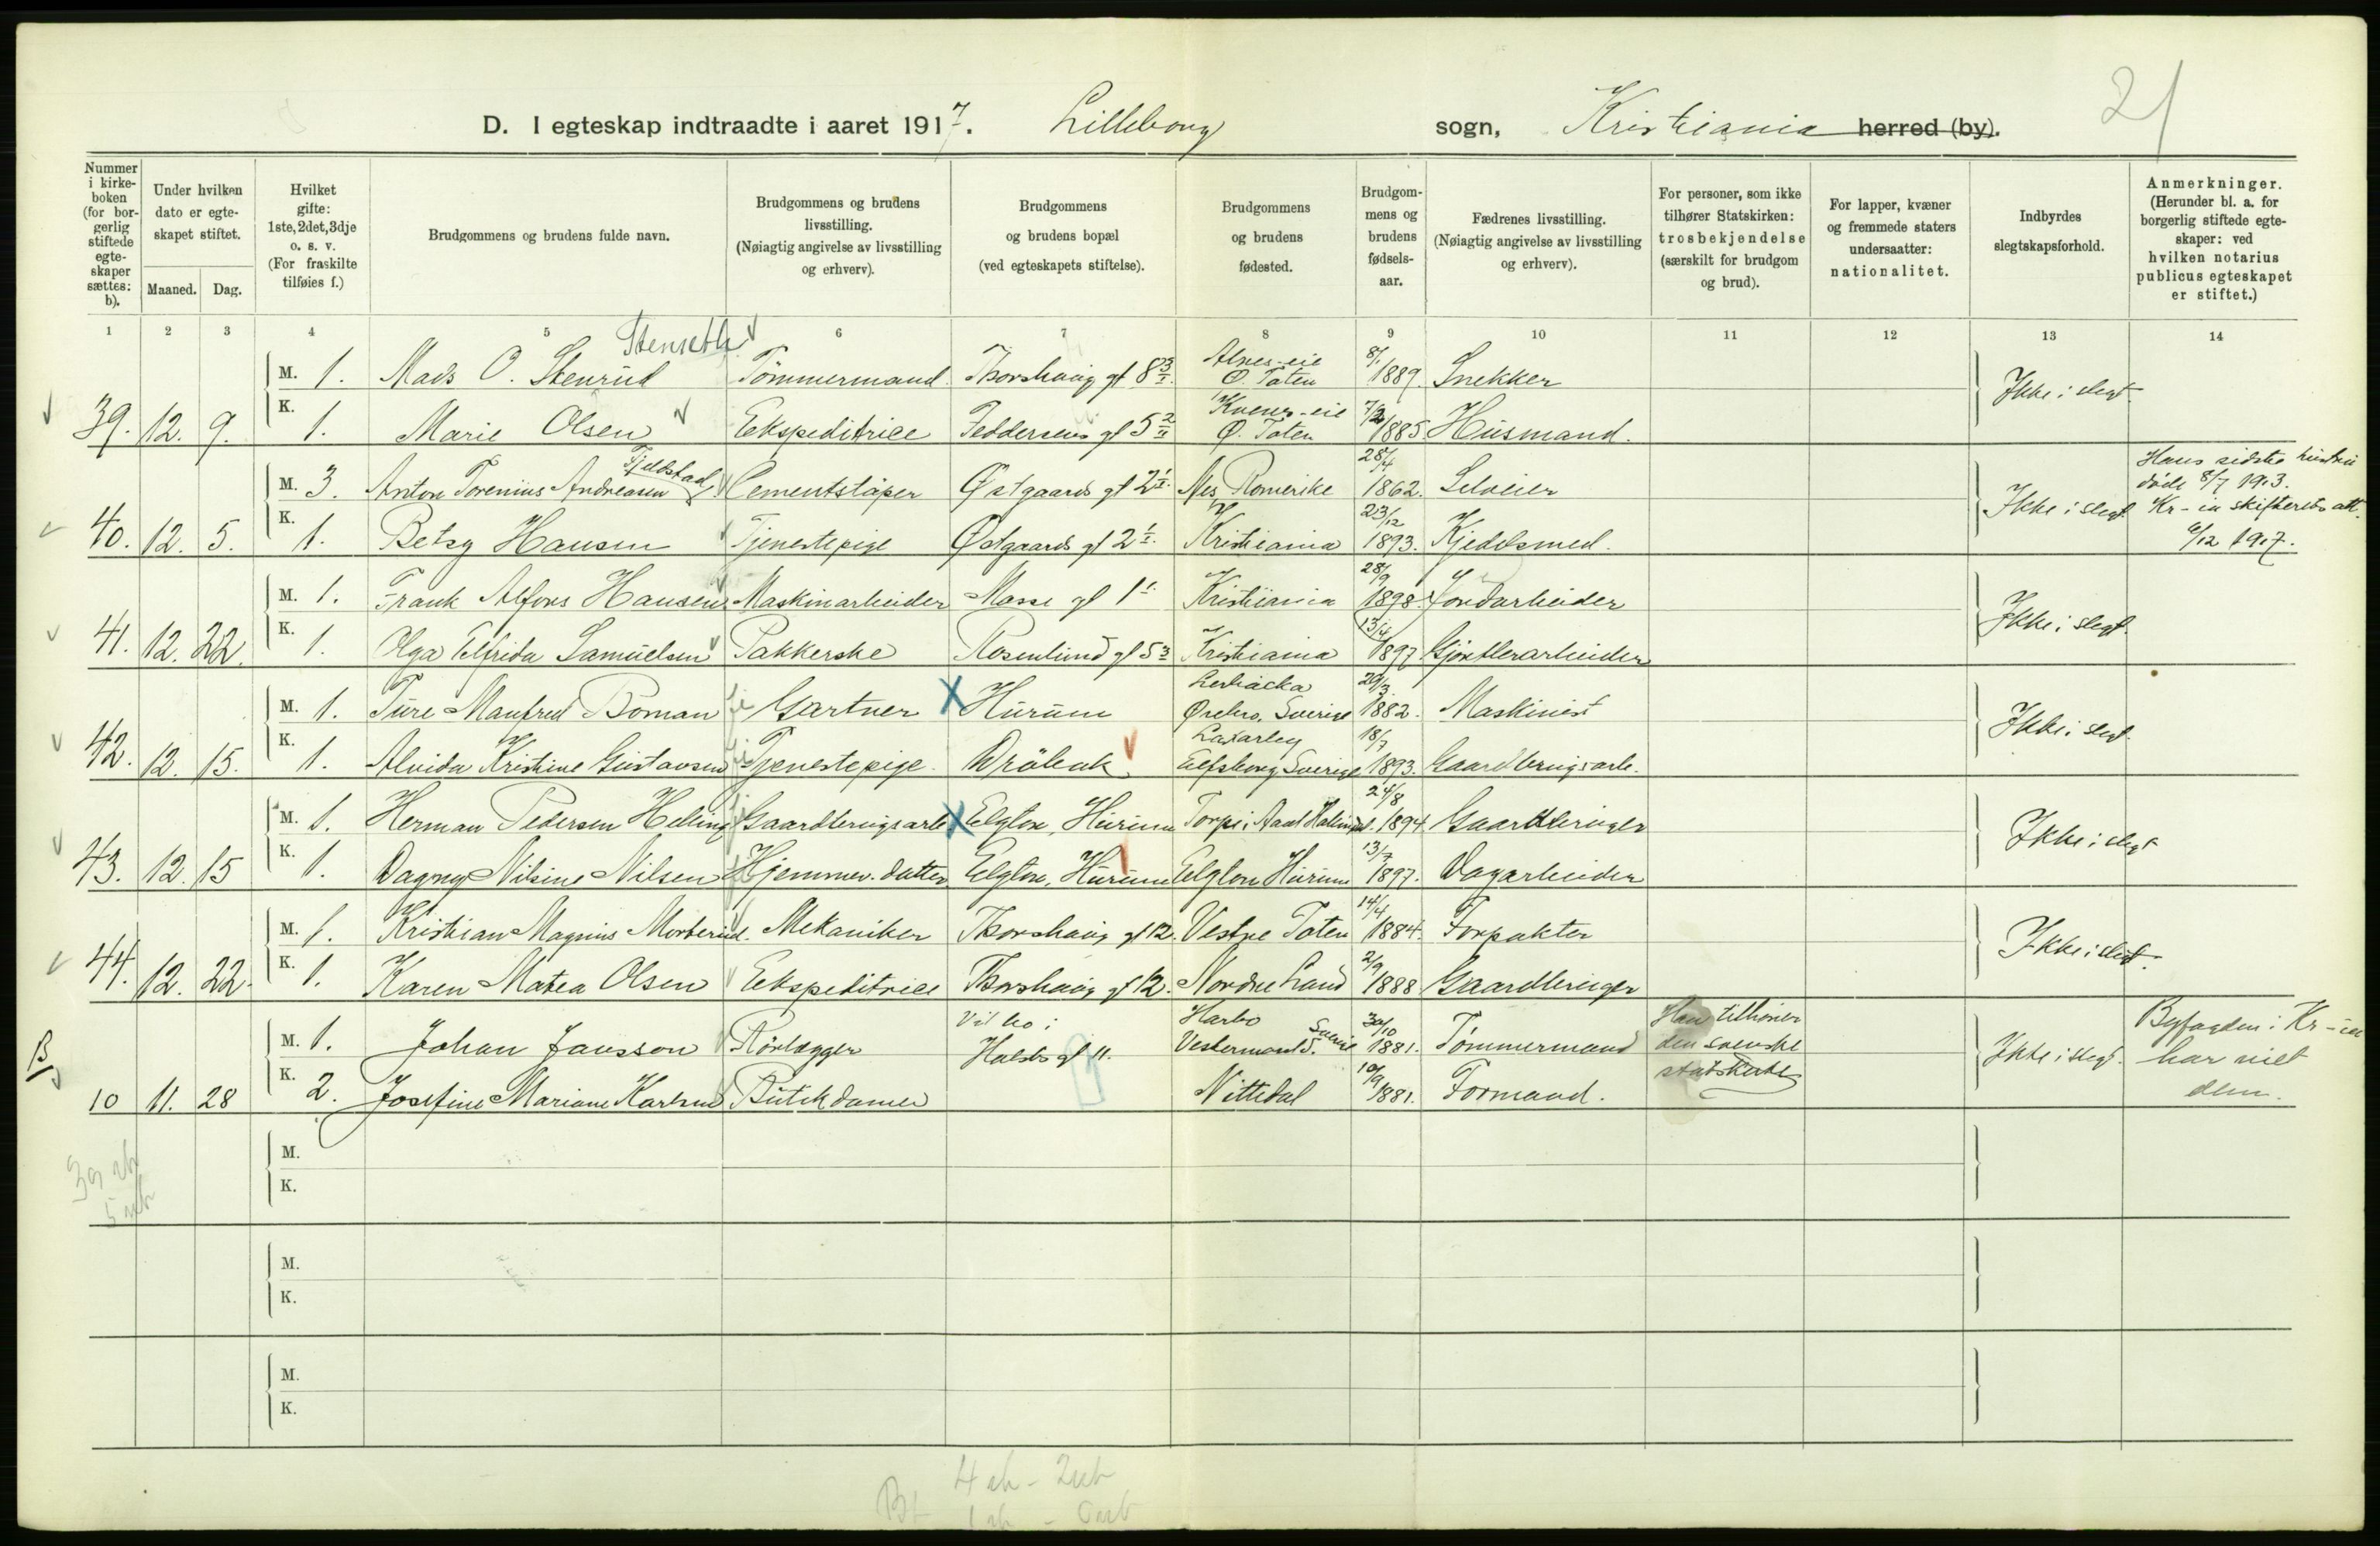 21
D. I egteskap indtraadte i aaret 1917. Lilleborg sogn, Kristiania herred (by).
Nummer i kirkeboken (for borgerlig stiftede egteskaper sættes: b).
Under hvilken dato er egteskapet stiftet.
Maaned. Dag.
Hvilket gifte: 1ste, 2det, 3dje o. s. v. (For fraskilte tilføies f.)
Brudgommens og brudens fulde navn.
Brudgommens og brudens livsstilling. (Nøiagtig angivelse av livsstilling og erhverv).
Brudgommens og brudens bopæl (ved egteskapets stiftelse).
Brudgommens og brudens fødested.
Brudgommens og brudens fødselsaar.
Fædrenes livsstilling. (Nøiagtig angivelse av livsstilling og erhverv).
For personer, som ikke tilhører Statskirken: trosbekjendelse (særskilt for brudgom og brud).
For lapper, kvæner og fremmede staters undersaatter: nationalitet.
Indbyrdes slegtskapsforhold.
Anmerkninger. (Herunder bl. a. for borgerlig stiftede egteskaper: ved hvilken notarius publicus egteskapet er stiftet.)
1 2 3 4 5 6 7 8 9 10 11 12 13 14
Stenseth
M. 1. Mads O. Stenrud Tömmermand Thorshaug gt 8 Ø. Toten 8/1 1889. Snekker Ikke i slegt
39. 12. 9. K. 1. Marie Olsen Ekspeditrice Feddersens gt 5 Ø. Toten 1885. Husmand.
Fjeldstad
M. 3. Anton Torenius Andreasen Cementstöper Østgaards gt 2 Nes, Romerike 28/4 1862. Selveier Ikke i slegt Hans sidste hustru döde 8/7 1913. Kr-ia skifterets att. 6/12 1917.
40. 12. 5. K. 1. Betsy Hansen Tjenestepige Østgaards gt 2 Kristiania 23/12 1893. Kjedelsmed.
M. 1. Frank Alfons Hansen Maskinarbeider Masse gt 1 Kristiania 28/9 1898. Jordarbeider Ikke i slegt.
41. 12. 22. K. 1. Olga Elfrida Samuelsen Pakkerske Rosenlund gt 5 Kristiania 13/4 1897 Gjørtlerarbeider
M. 1. Ture Manfred Boman Gartner Hurum Lerbäcka Örebro, Sverige 29/3 1882. Maskinist Ikke i slegt.
42. 12. 15. K. 1. Alvida Kristine Gustavsen Tjenestepige. Dröbak Laxarby Elfsborg Sverige 18/7 1893. Gaardbrugsarb.
M. 1. Herman Pedersen Helling Gaardbrugsarb. Elgton, Hurum Torpe i Aal Hallingd. 24/8 1894 Gaardbruger Ikke i slegt
43. 12. 15 K. 1. Dagny Nilsine Nilsen Hjemmev. datter Elgton, Hurum Elgton Hurum 13/7 1897. Dagarbeider
M. 1. Kristian Magnus Morterud. Mekaniker Thorshaug gt 12. Vestre Toten 14/4 1884. Forpakter Ikke i slegt.
44. 12. 22. K. 1. Karen Matea Olsen Ekspeditrice Thorshaug gt 12. Nordre Land 2/9 1888 Gaardbruger
B
M. 1. Johan Jansson Rörlægger Vil bo i Halsts gt 11. Harbo Vestermanld. Sverige 30/10 1881. Tömmermand Han tilhører den svenske statskirke Ikke i slegt. Byfogden i Kr-ia har viet dem.
10 11. 28 K. 2. Josefine Mariane Karlsen Butikdame Nittedal 10/9 1881. Formand.
M.
K.
M.
K.
M.
K.